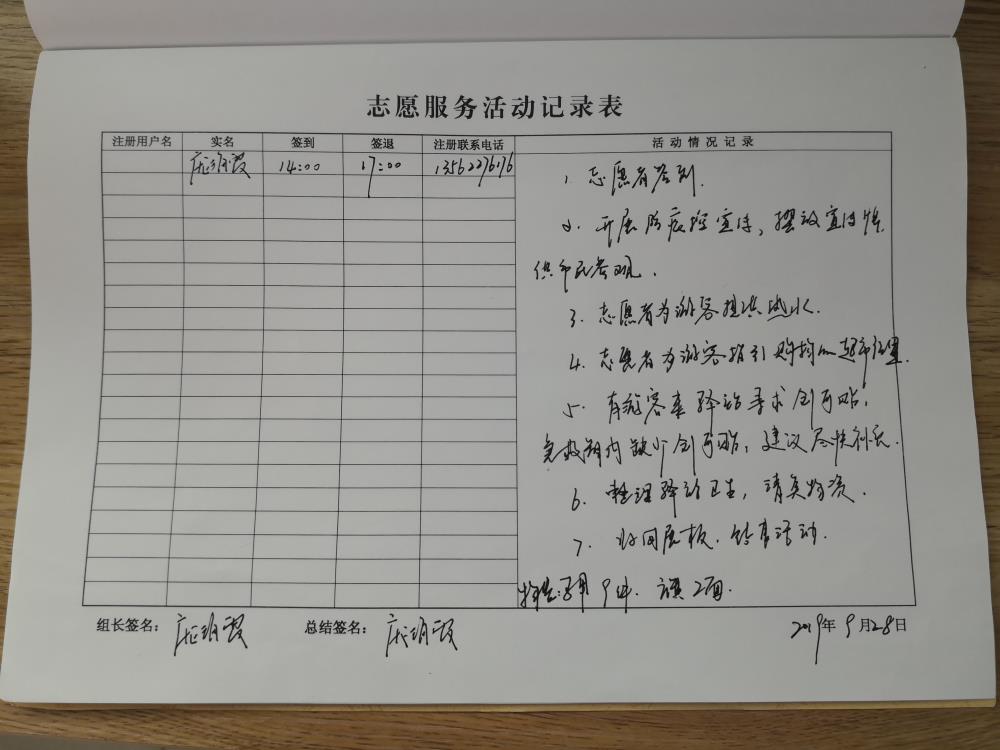 志愿服务活动记录表
注册用户名 实名 签到 签退 注册联系电话 活动情况记录
14:00 17:00 13562276176
1. 志愿者签到.
2. 开展防疫控宣传, 摆放宣传
供市民参观.
3. 志愿者为游客提供热水.
4. 志愿者为游客指引购物的超市位置.
5. 有游客来驿站寻求创可贴,
急救箱内缺少创可贴, 建议尽快补充.
6. 整理驿站卫生, 清点物资.
7. 收回展板. 结束活动.
9件. 2面.
组长签名: 总结签名: 2019年9月28日